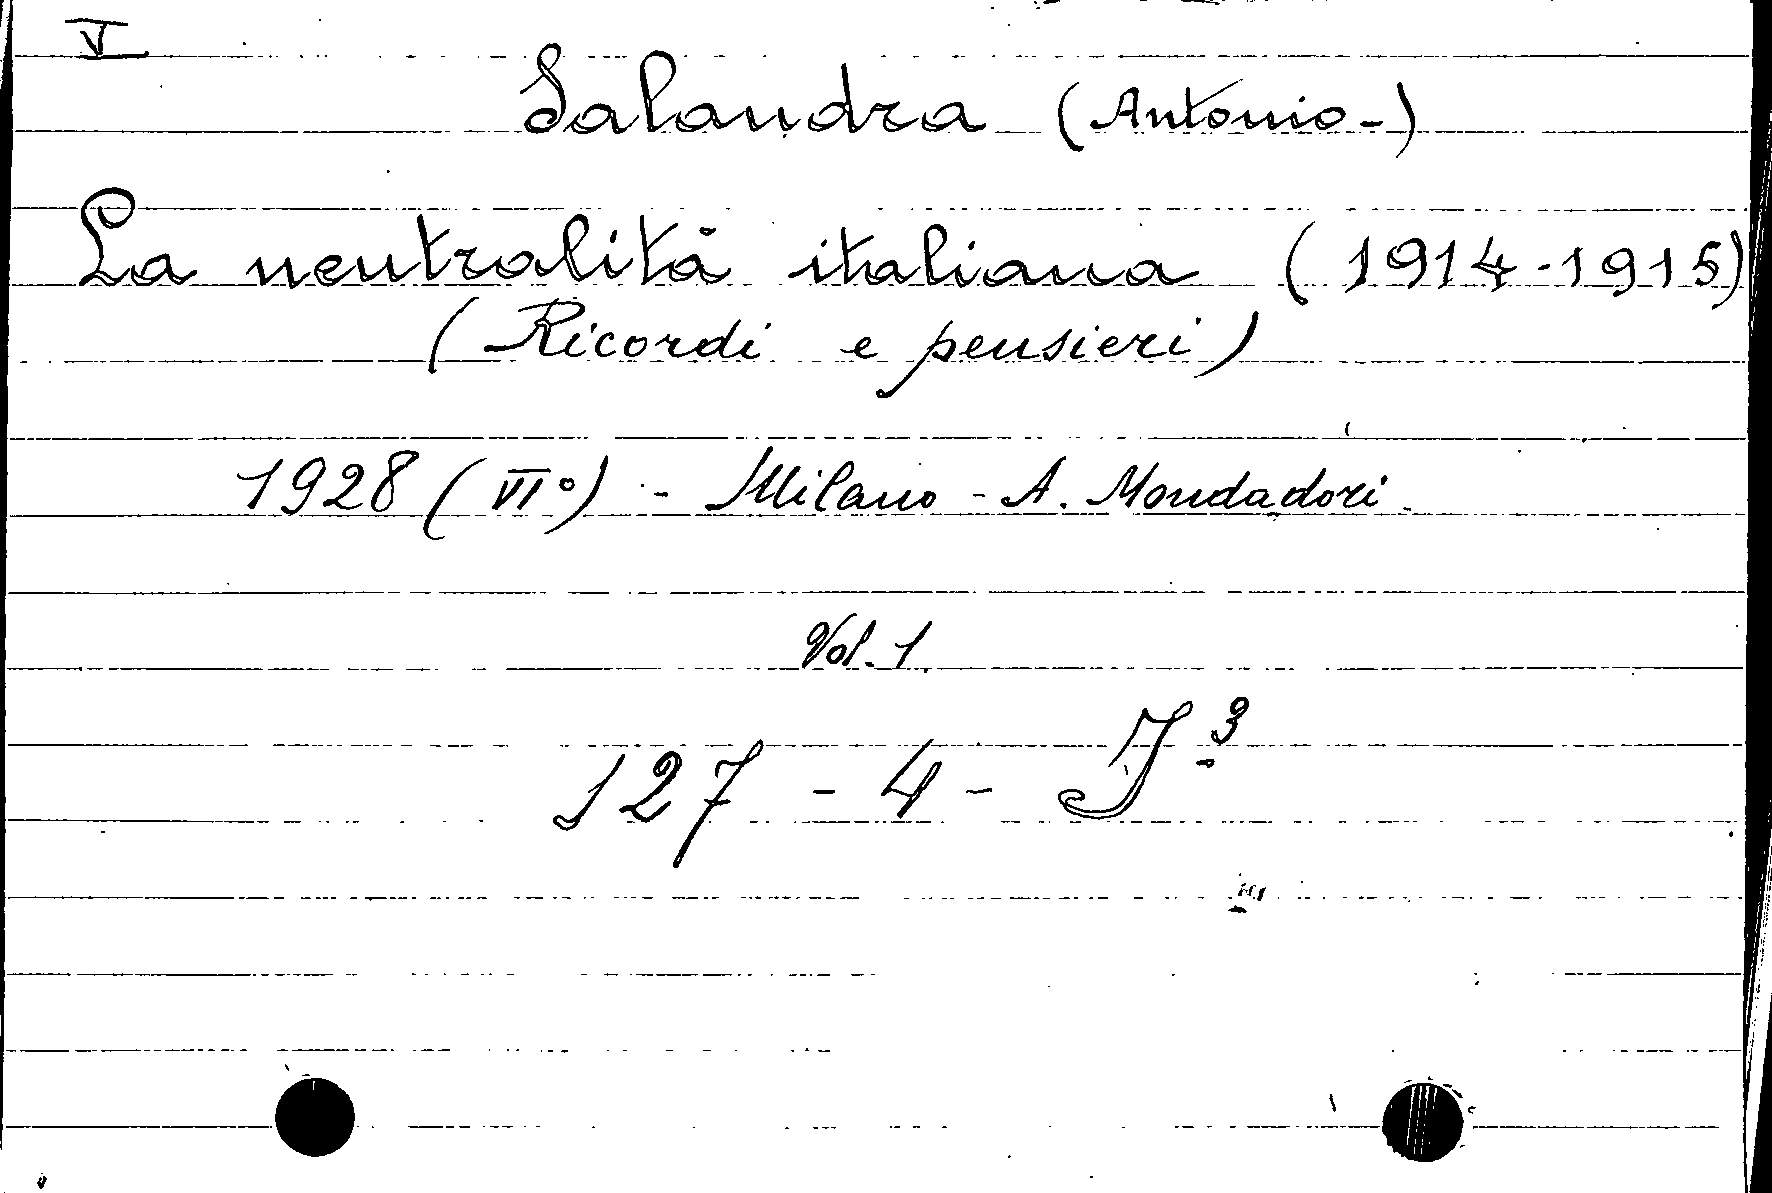 V
Salandra (Antonio-)
La neutralità italiana (1914-1915)
(Ricordi e pensieri)
1928 (VI°) - Milano - A. Mondadori.
Vol. 1.
127 - 4 - J.³